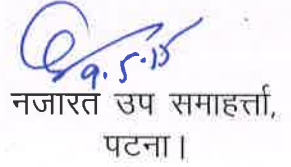 9.5.15
नजारत उप समाहर्त्ता,
पटना।